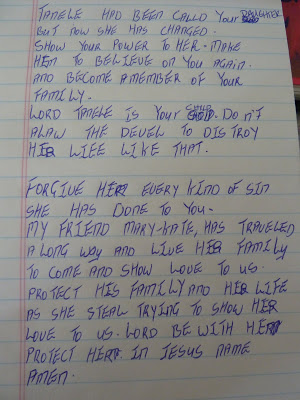 TANELE HAD BEEN CALLED YOUR DAUGHTER
BUT NOW SHE HAS CHANGED.
SHOW YOUR POWER TO HER. MAKE
HER TO BELIEVE ON YOU AGAIN.
AND BECOME A MEMBER OF YOUR
FAMILY.
LORD TANELE IS YOUR CHILD. DON'T
ALAW THE DEVEL TO DISTROY
HER LIFE LIKE THAT.
FORGIVE HER EVERY KIND OF SIN
SHE HAS DONE TO YOU.
MY FRIEND MARY-KATE, HAS TRAVELED
A LONG WAY AND LIVE HER FAMILY
TO COME AND SHOW LOVE TO US.
PROTECT HIS FAMILY AND HER LIFE
AS SHE STEAL TRYING TO SHOW HER
LOVE TO US. LORD BE WITH HER
PROTECT HER IN JESUS NAME
AMEN.